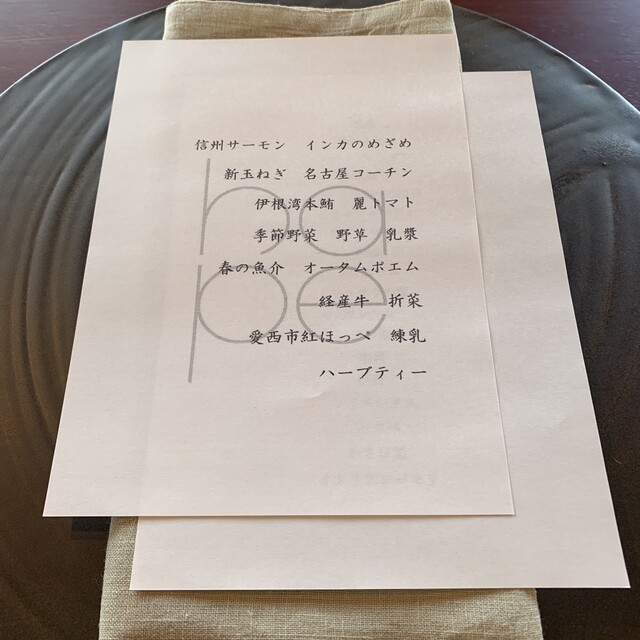 信州サーモン　インカのめざめ
新玉ねぎ　名古屋コーチン
伊根湾本鮪　麗トマト
季節野菜　野草　乳漿
春の魚介　オータムポエム
経産牛　折菜
愛西市紅ほっぺ　練乳
ハーブティー
ha
pe